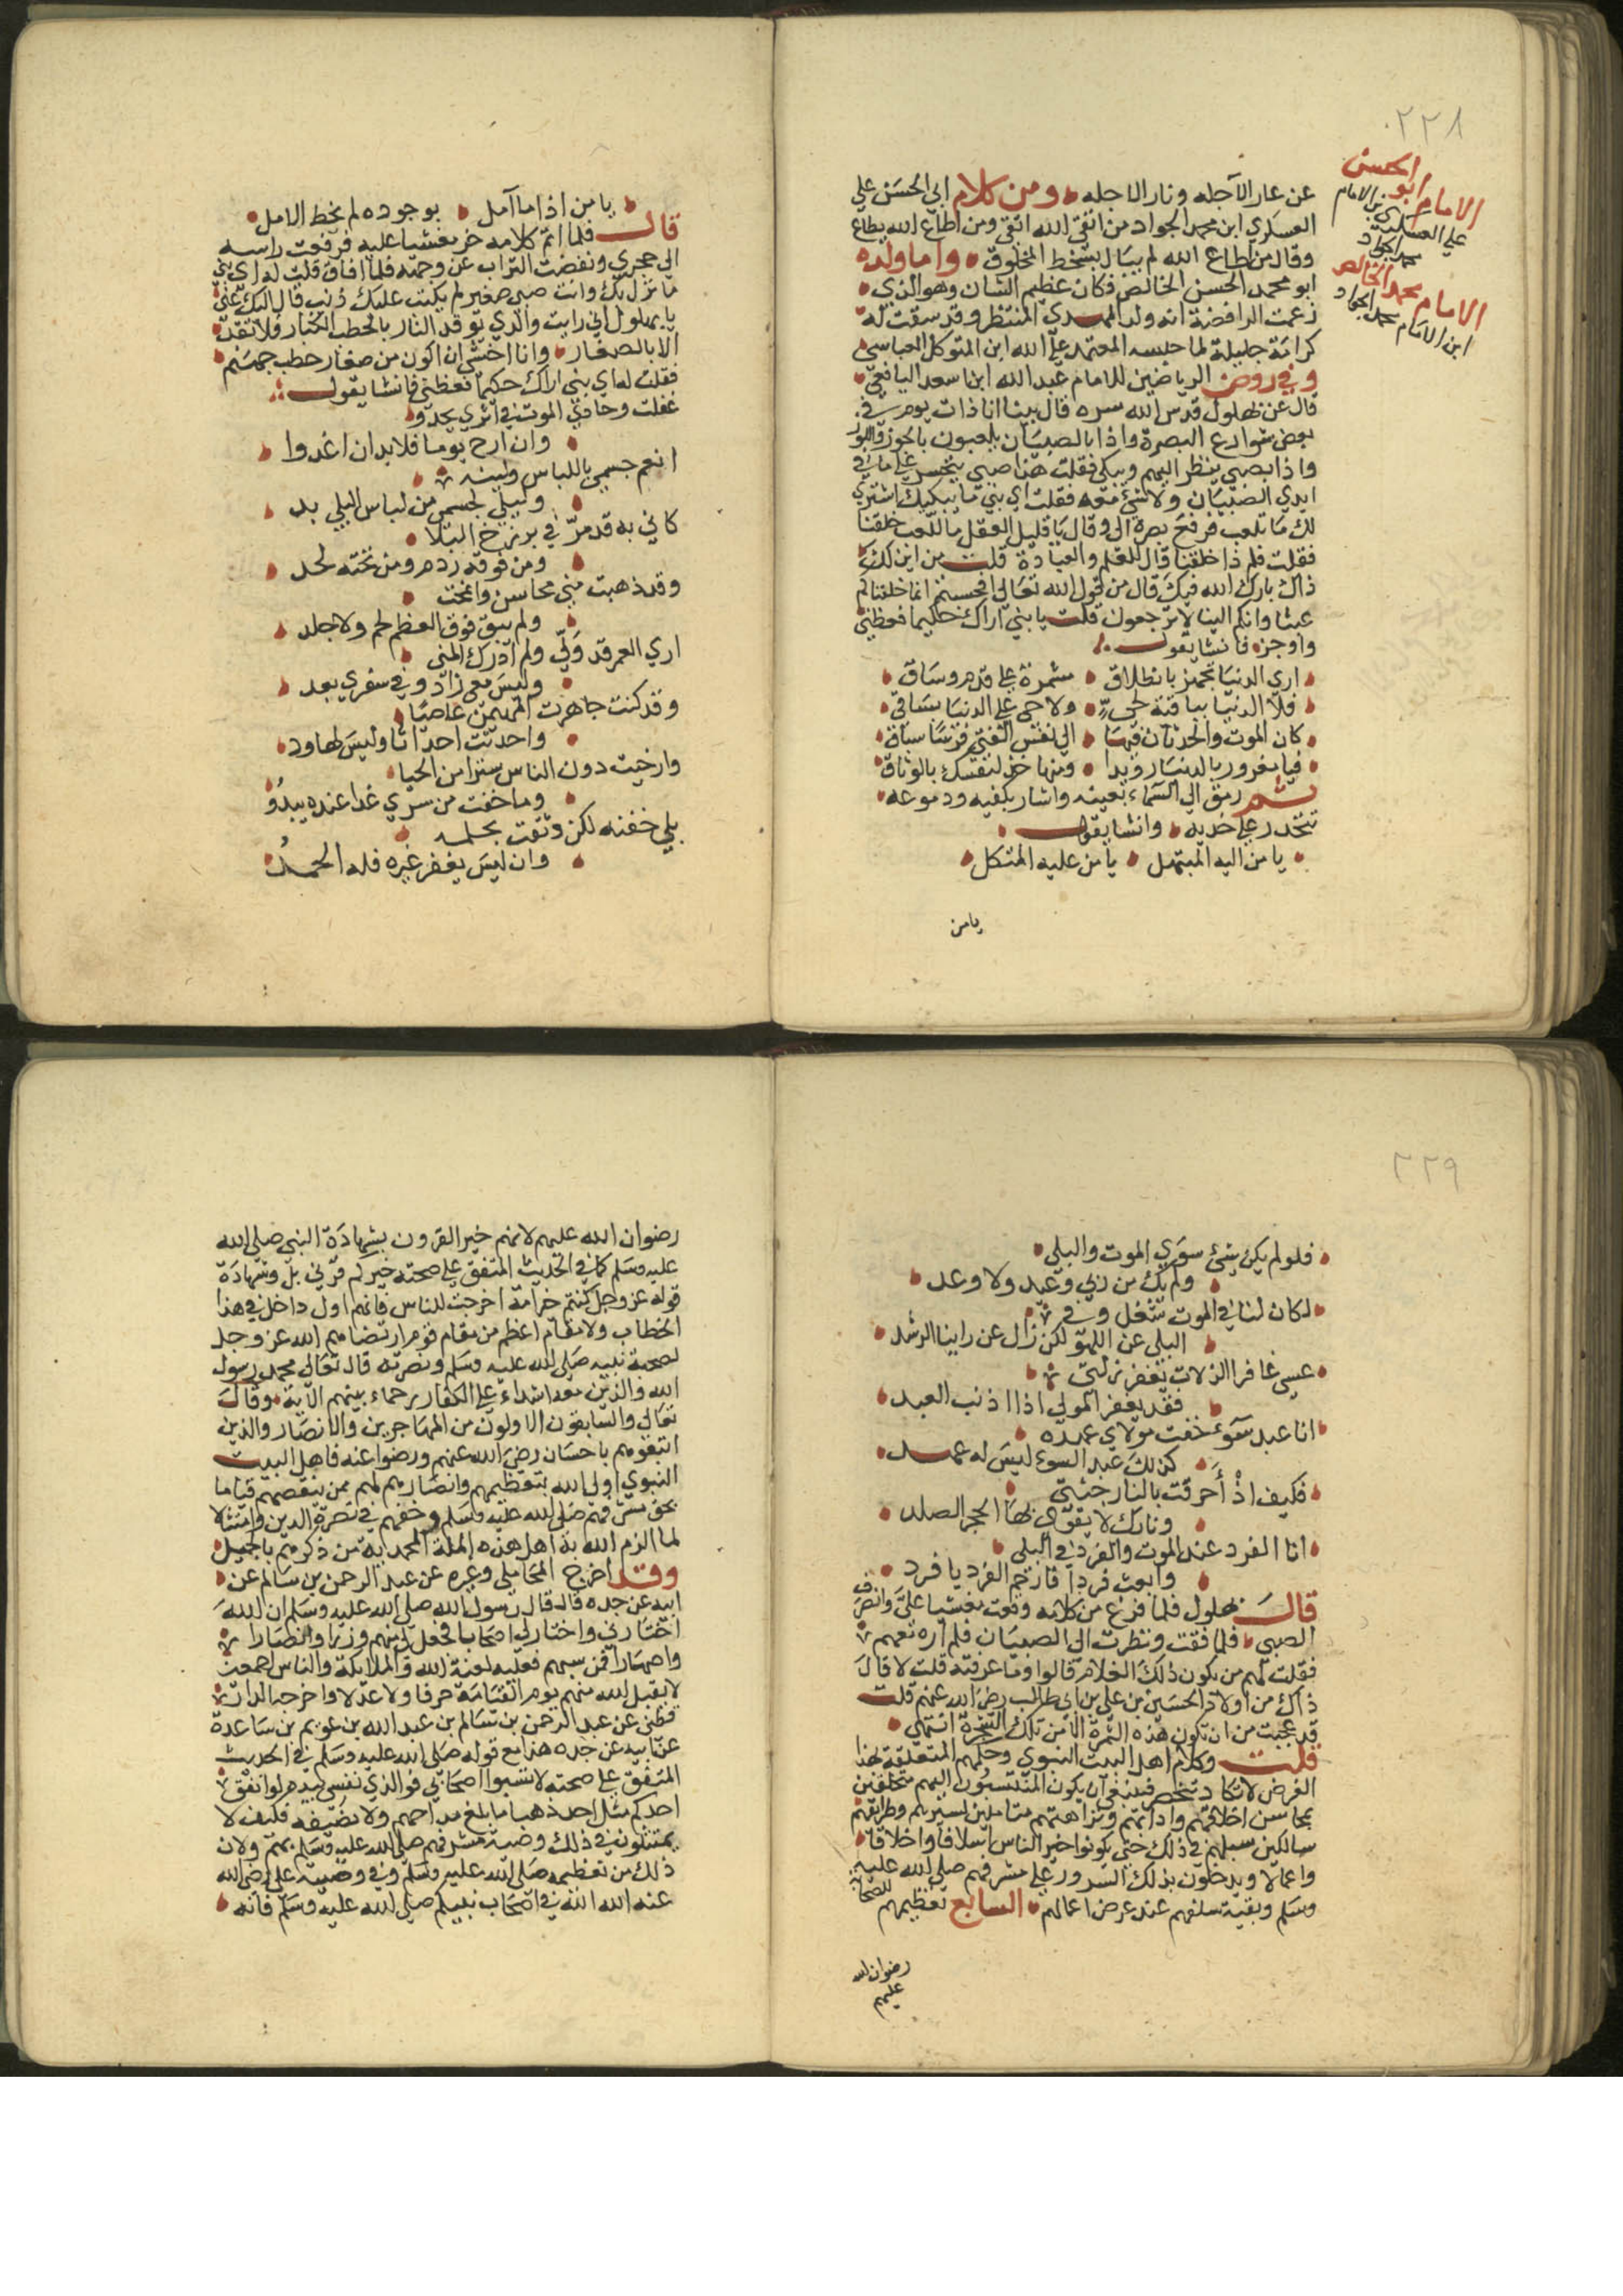 ٢٢٨
الامام ابو الحسن
علي العسكري بن الامام
محمد الجواد
الامام محمد الخالص
ابن الامام محمد الجواد
عن عار الآجله ونار الاجله ومن كلام ابي الحسن علي
العسكري ابن محمد الجواد من اتقى الله اتقى ومن اطاع الله يطاع
وقال من اطاع الله لم يبال بسخط المخلوق واما ولده
ابو محمد الحسن الخالص فكان عظيم الشان وهو الذي
زعمت الرافضة انه ولد المهدي المنتظر وقد سبقت له
كرامة جليلة لما حبسه المعتمد على الله ابن المتوكل العباسي
وفي روض الرياضين للامام عبد الله ابن اسعد اليافعي
قال عن بهلول قدس الله سره قال بينا انا ذات يوم في
بعض شوارع البصرة واذا بالصبيان يلعبون بالجوز واللوز
واذا بصبي ينظر اليهم ويبكي فقلت هذا صبي يتحسر على ما في
ايدي الصبيان ولا شئ معه فقلت اي بني ما يبكيك اشتري
لك ما تلعب فرفع بصره الي وقال يا قليل العقل ما للعب خلقنا
فقلت فلم ذا خلقنا قال للعلم والعبادة قلت من اين لك
ذاك بارك الله فيك قال من قول الله تعالى افحسبتم انما خلقناكم
عبثا وانكم الينا لا ترجعون قلت يا بني اراك حكيما فعظني
واوجز فانشا يقول
اري الدنيا تجهز بانطلاق مشمرة على قدم وساق
فلا الدنيا بباقية لحي ولا حي على الدنيا بباقي
كان الموت والحدثان فيها الى نفس الفتى فرسا سباق
فيا مغرور بالدنيا رويدا ومنها خذ لنفسك بالوثاق
ثم رمق الى السماء بعينه واشار بكفيه ودموعه
تتحدر على خديه وانشا يقول
يا من اليه المبتهل يا من عليه المتكل
يا من
يا من اذا ما آمل بوجوده لم يخط الامل
قال فلما اتم كلامه خر مغشيا عليه فرفعت راسه
الى حجري ونفضت التراب عن وجهه فلما افاق قلت له اي بني
ما نزل بك وانت صبي صغير لم يكتب عليك ذنب قال اليك عني
يا بهلول اني رايت والدي توقد النار بالحطب الكبار فلا تتقد
الا بالصغار وانا اخشى ان اكون من صغار حطب جهنم
فقلت له اي بني اراك حكيما فعظني فانشا يقول
غفلت وحادي الموت في اثري يحدو
وان ارح يوما فلا بد ان اغدوا
انعم جسمي باللباس ولينه
وليس لجسمي من لباس البلي بد
كاني به قد مر في برزخ البلا
ومن فوقه ردم ومن تحته لحد
وقد ذهبت مني محاسن وانمحت
ولم يبق فوق العظم لحم ولا جلد
اري العمر قد ولى ولم ادرك المنى
وليس معي زاد وفي سفري بعد
وقد كنت جاهرت المهيمن عاصيا
واحدثت احداثا وليس لها ود
وارخيت دون الناس سترا من الحيا
وما خفت من سري غدا عنده يبدو
بلى خفته لكن وثقت بحلمه
وان ليس يغفر غيره فله الحمد
٢٢٩
فلو لم يكن شئ سوى الموت والبلى
ولم يك من ربي وعيد ولا وعد
لكان لنا في الموت شغل وفي
البلي عن اللهو لكن زال عن راينا الرشد
عسى غافر الزلات يغفر زلتي
فقد يغفر المولى اذا اذنب العبد
انا عبد سوء خنت مولاي عهده
كذلك عبد السوء ليس له عهد
فكيف اذ أحرقت بالنار جثتي
ونارك لا يقوى لها الحجر الصلد
انا الفرد عند الموت والفرد في البلي
وابعث فردا فارحم الفرد يا فرد
قال بهلول فلما فرغ من كلامه وقعت مغشيا علي وانصرف
الصبي فلما فقت ونظرت الى الصبيان فلم اره معهم
فقلت لهم من يكون ذلك الغلام قالوا وما عرفته قلت لا قال
ذاك من اولاد الحسين بن علي بن ابي طالب رضي الله عنهم قلت
قد عجبت من ان تكون هذه الثمرة الا من تلك الشجرة انتهى
قلت وكلام اهل البيت النبوي وحكمهم المتعلقة بهذا
الغرض لا تكاد تنحصر فينبغي ان يكون المنتسبون اليهم متخلقين
بمحاسن اخلاقهم وادابهم ونزاهتهم متاملين لسيرهم وطرايقهم
سالكين سبيلهم في ذلك حتى يكونوا خير الناس اسلافا واخلاقا
واعمالا ويدخلون بذلك السرور على مشرفهم صلى الله عليه
وسلم وبقية سلفهم عند عرض اعمالهم السابع تعظيمهم للصحابة
رضوان الله
عليهم
رضوان الله عليهم لانهم خير القرون بشهادة النبي صلى الله
عليه وسلم كما في الحديث المتفق على صحته خيركم قرني بل وشهادة
قوله عز وجل كنتم خير امة اخرجت للناس فانهم اول داخل في هذا
الخطاب ولا مقام اعظم من مقام قوم ارتضاهم الله عز وجل
لصحبة نبيه صلى الله عليه وسلم ونصرته قال تعالى محمد رسول
الله والذين معه اشداء على الكفار رحماء بينهم الآية وقال
تعالى والسابقون الاولون من المهاجرين والانصار والذين
اتبعوهم باحسان رضي الله عنهم ورضوا عنه فاهل البيت
النبوي اولى الله بتعظيمهم وانتصارهم لهم ممن ينقصهم قياما
بحق مشرفهم صلى الله عليه وسلم وحقهم في نصرة الدين وامتثالا
لما الزم الله به اهل هذه الملة المحمدية من ذكرهم بالجميل
وقد اخرج المحاملي وغيره عن عبد الرحمن بن سالم عن
ابيه عن جده قال قال رسول الله صلى الله عليه وسلم ان الله
اختارني واختار لي اصحابا فجعل لي منهم وزرا وانصارا
واصهارا فمن سبهم فعليه لعنة الله والملائكة والناس اجمعين
لا يقبل الله منهم يوم القيامة صرفا ولا عدلا واخرجه الدار
قطني عن عبد الرحمن بن سالم بن عبد الله بن عويم بن ساعدة
عن ابيه عن جده هذا مع قوله صلى الله عليه وسلم في الحديث
المتفق على صحته لا تسبوا اصحابي فوالذي نفسي بيده لو انفق
احدكم مثل احد ذهبا ما بلغ مد احدهم ولا نصيفه فكيف لا
يمتثلون في ذلك وصية مشرفهم صلى الله عليه وسلم بهم ولان
ذلك من تعظيمه صلى الله عليه وسلم وفي وصية علي رضي الله
عنه الله الله في اصحاب نبيكم صلى الله عليه وسلم فانه